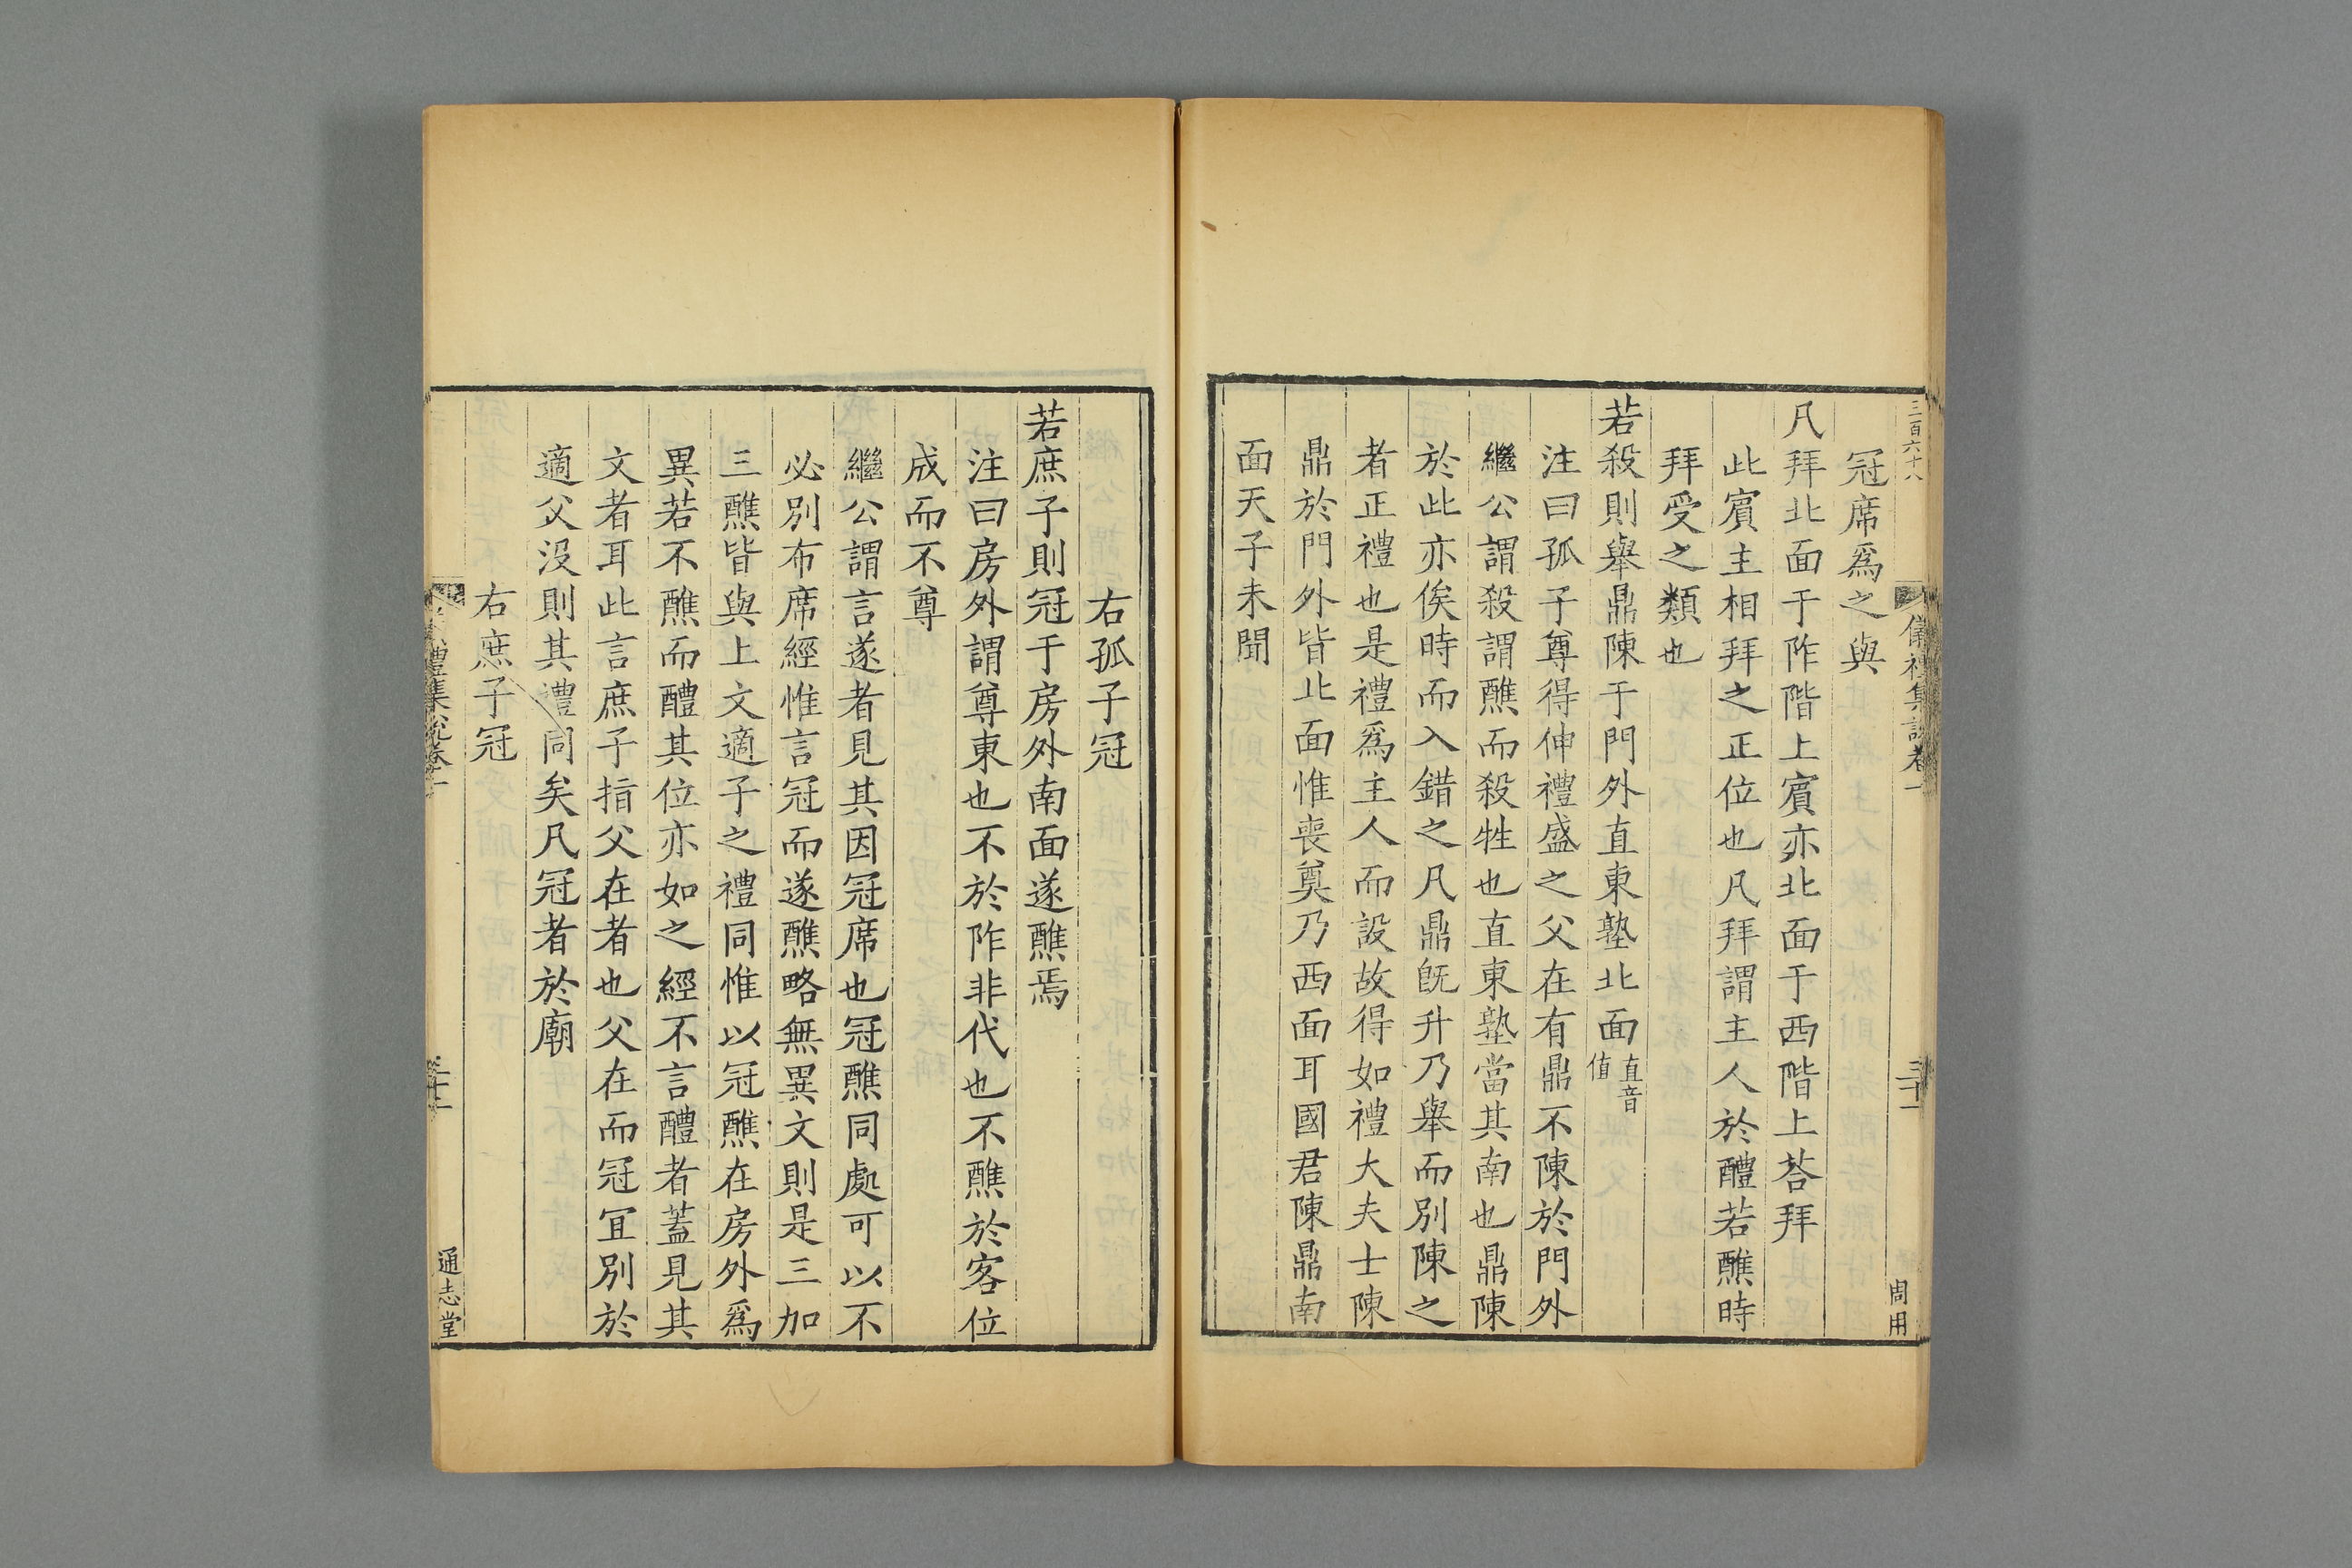 三百六十八
儀禮集說卷一
三十一
周用
冠席爲之與
凡拜北面于阼階上賓亦北面于西階上荅拜
此賓主相拜之正位也凡拜謂主人於醴若醮時
拜受之類也
若殺則舉鼎陳于門外直東塾北面直音值
注曰孤子尊得伸禮盛之父在有鼎不陳於門外
繼公謂殺謂醮而殺牲也直東塾當其南也鼎陳
於此亦俟時而入錯之凡鼎旣升乃舉而別陳之
者正禮也是禮爲主人而設故得如禮大夫士陳
鼎於門外皆北面惟喪奠乃西面耳國君陳鼎南
面天子未聞
右孤子冠
若庶子則冠于房外南面遂醮焉
注曰房外謂尊東也不於阼非代也不醮於客位
成而不尊
繼公謂言遂者見其因冠席也冠醮同處可以不
必別布席經惟言冠而遂醮略無異文則是三加
三醮皆與上文適子之禮同惟以冠醮在房外爲
異若不醮而醴其位亦如之經不言醴者蓋見其
文者耳此言庶子指父在者也父在而冠宜別於
適父没則其禮同矣凡冠者於廟
右庶子冠
禮集說卷一
通志堂